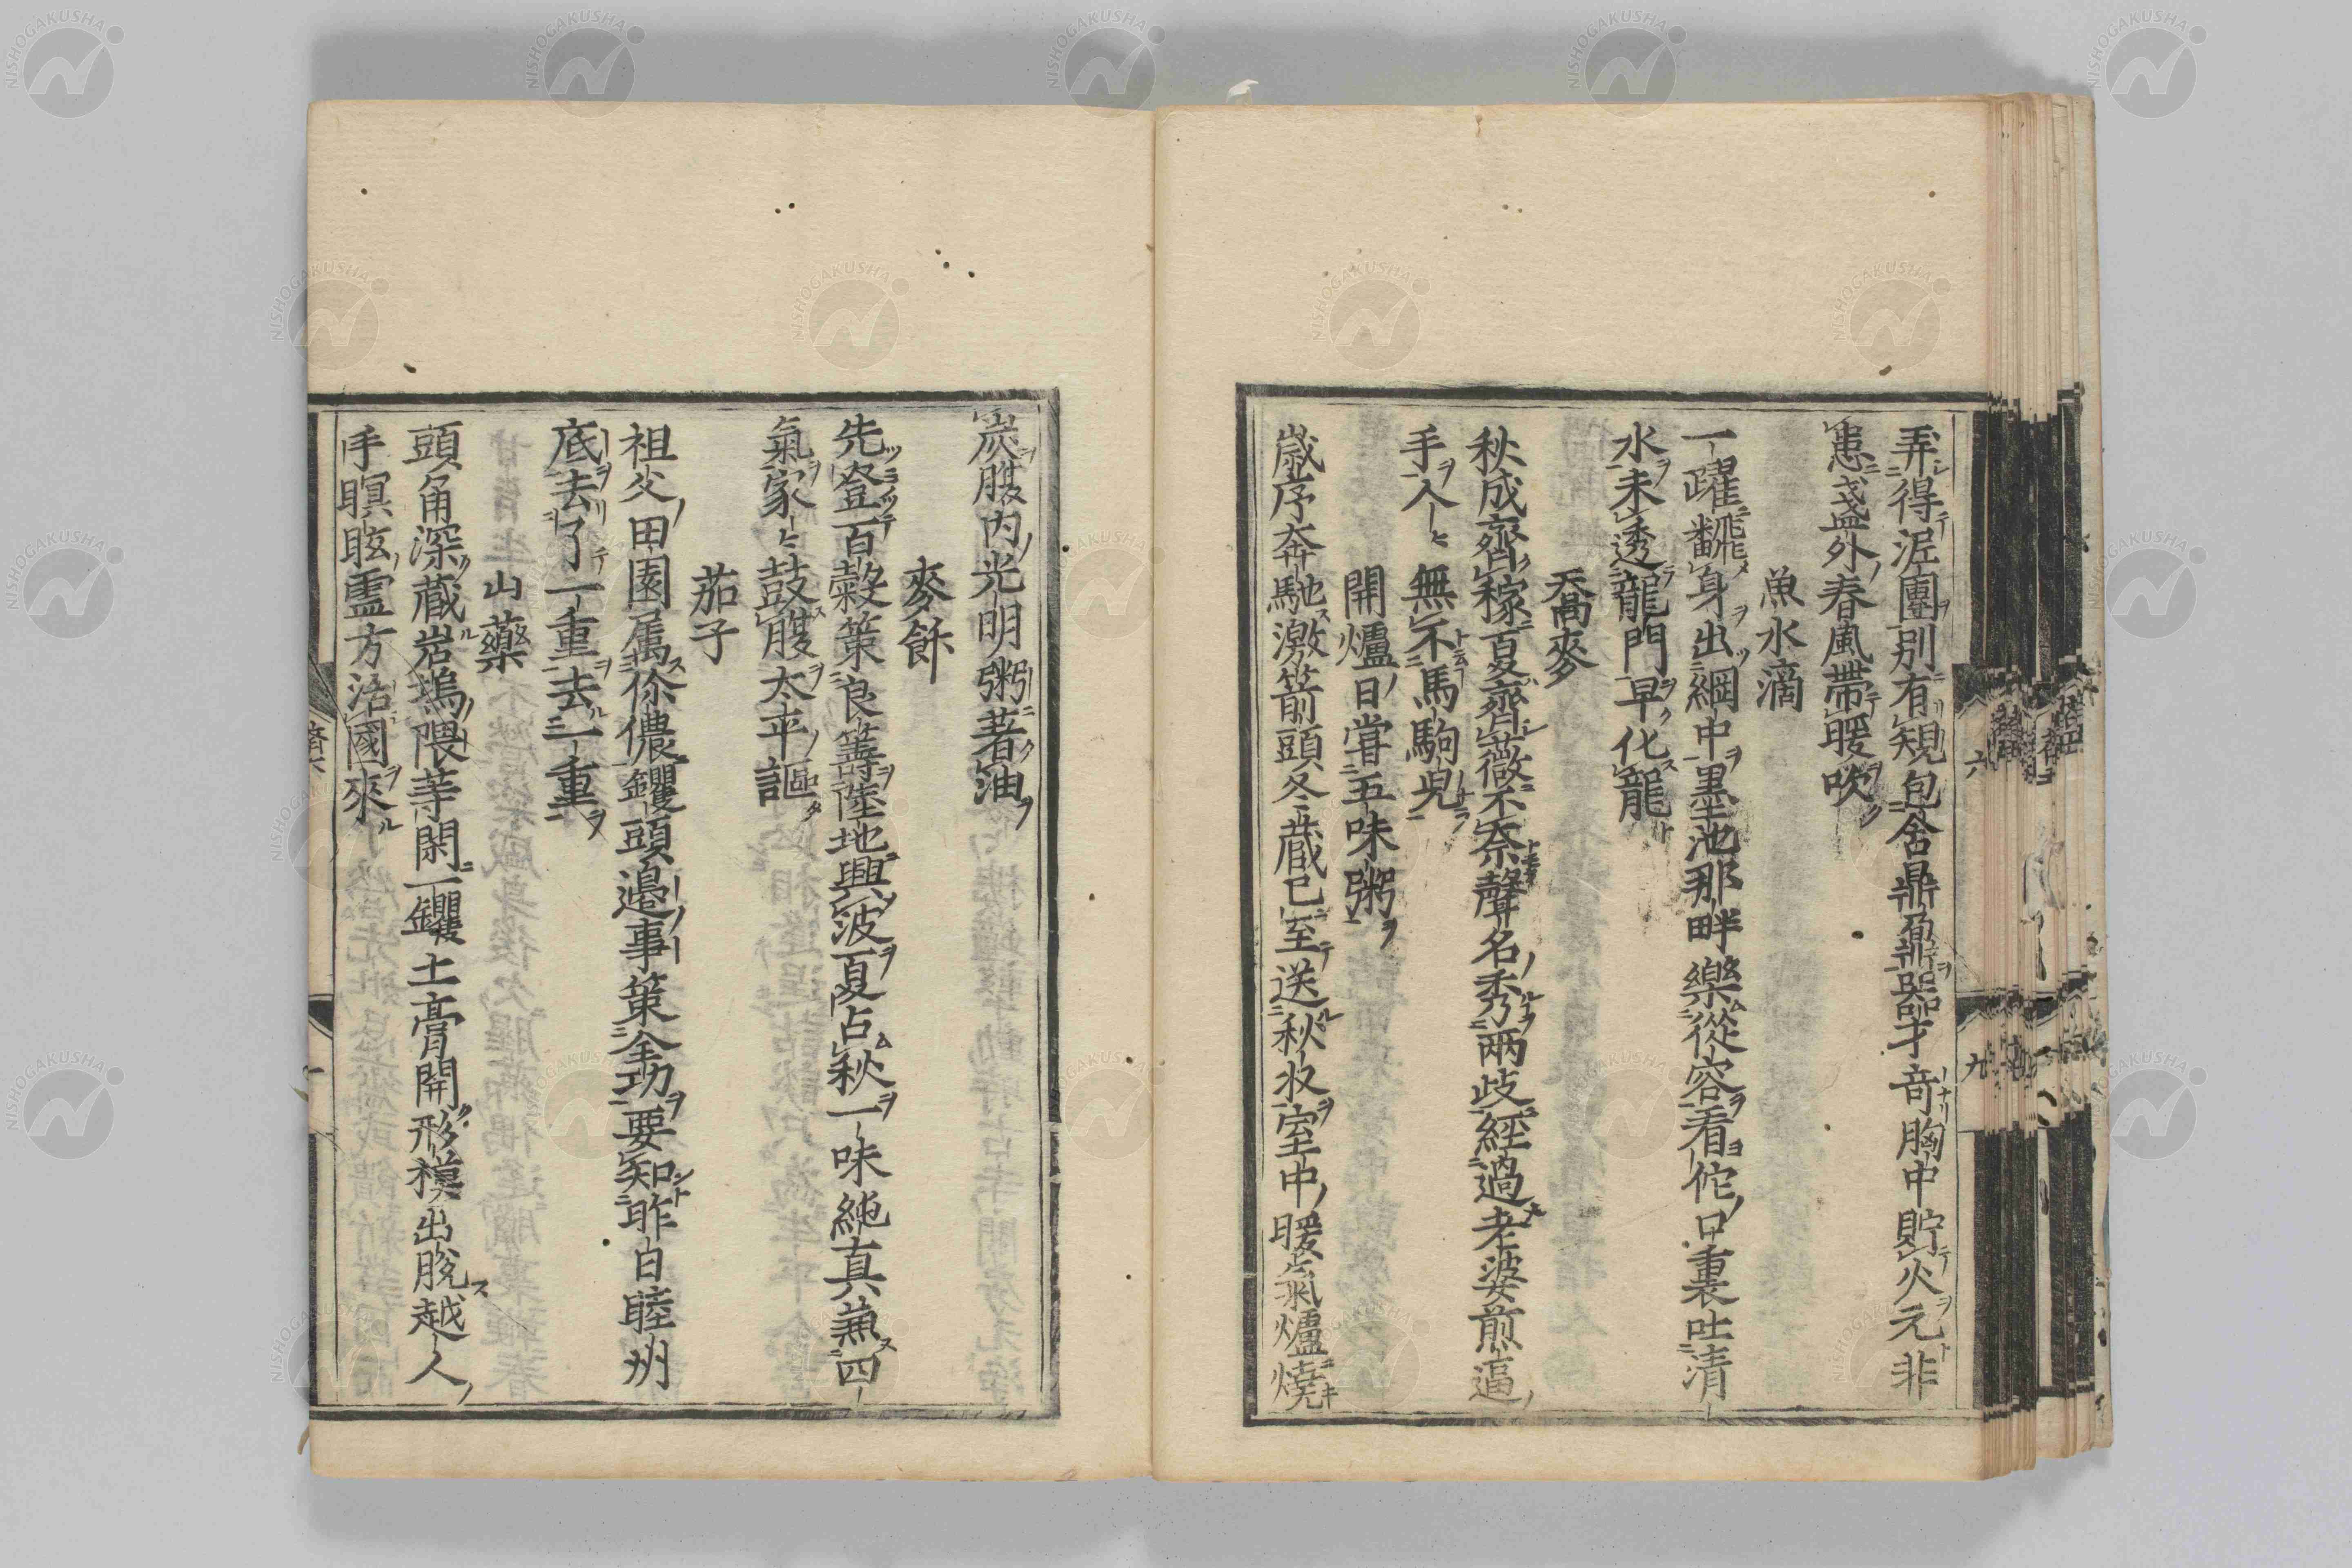 弄得泥團別有規包含鼎鼐器才竒胸中貯火元非
恚盞外春風帶暖吹
魚水滴
一躍飜身出網中墨池那畔樂從容看佗口裏吐清
水未透龍門早化龍
喬麥
秋成齊稼夏齊薇不奈聲名秀兩歧經過老婆煎逼
手人人無不馬駒兒
開爐日甞五味粥
歳序奔馳激箭頭冬藏已至送秋收室中暖氣爐燒
炭腹内光明粥著油
麥餅
先登百穀策良籌陸地興波夏占秋一味純真兼四
氣家家鼓腹太平謳
茄子
祖父田園属你儂钁頭邉事策全功要知昨白睦州
底去了一重去一重
山藥
頭角深藏岩塢隈等閑一钁土膏開形模出脫越人
手瞑眩靈方活國來